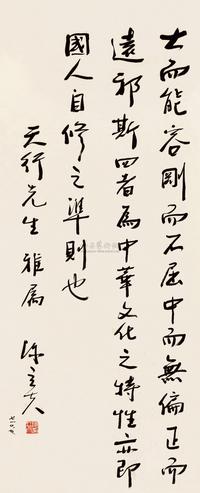 大而能容剛而不屈中而無偏正而
遠邪斯四者為中華文化之特性亦即
國人自修之準則也
天行先生雅屬
陳立夫
七六、九